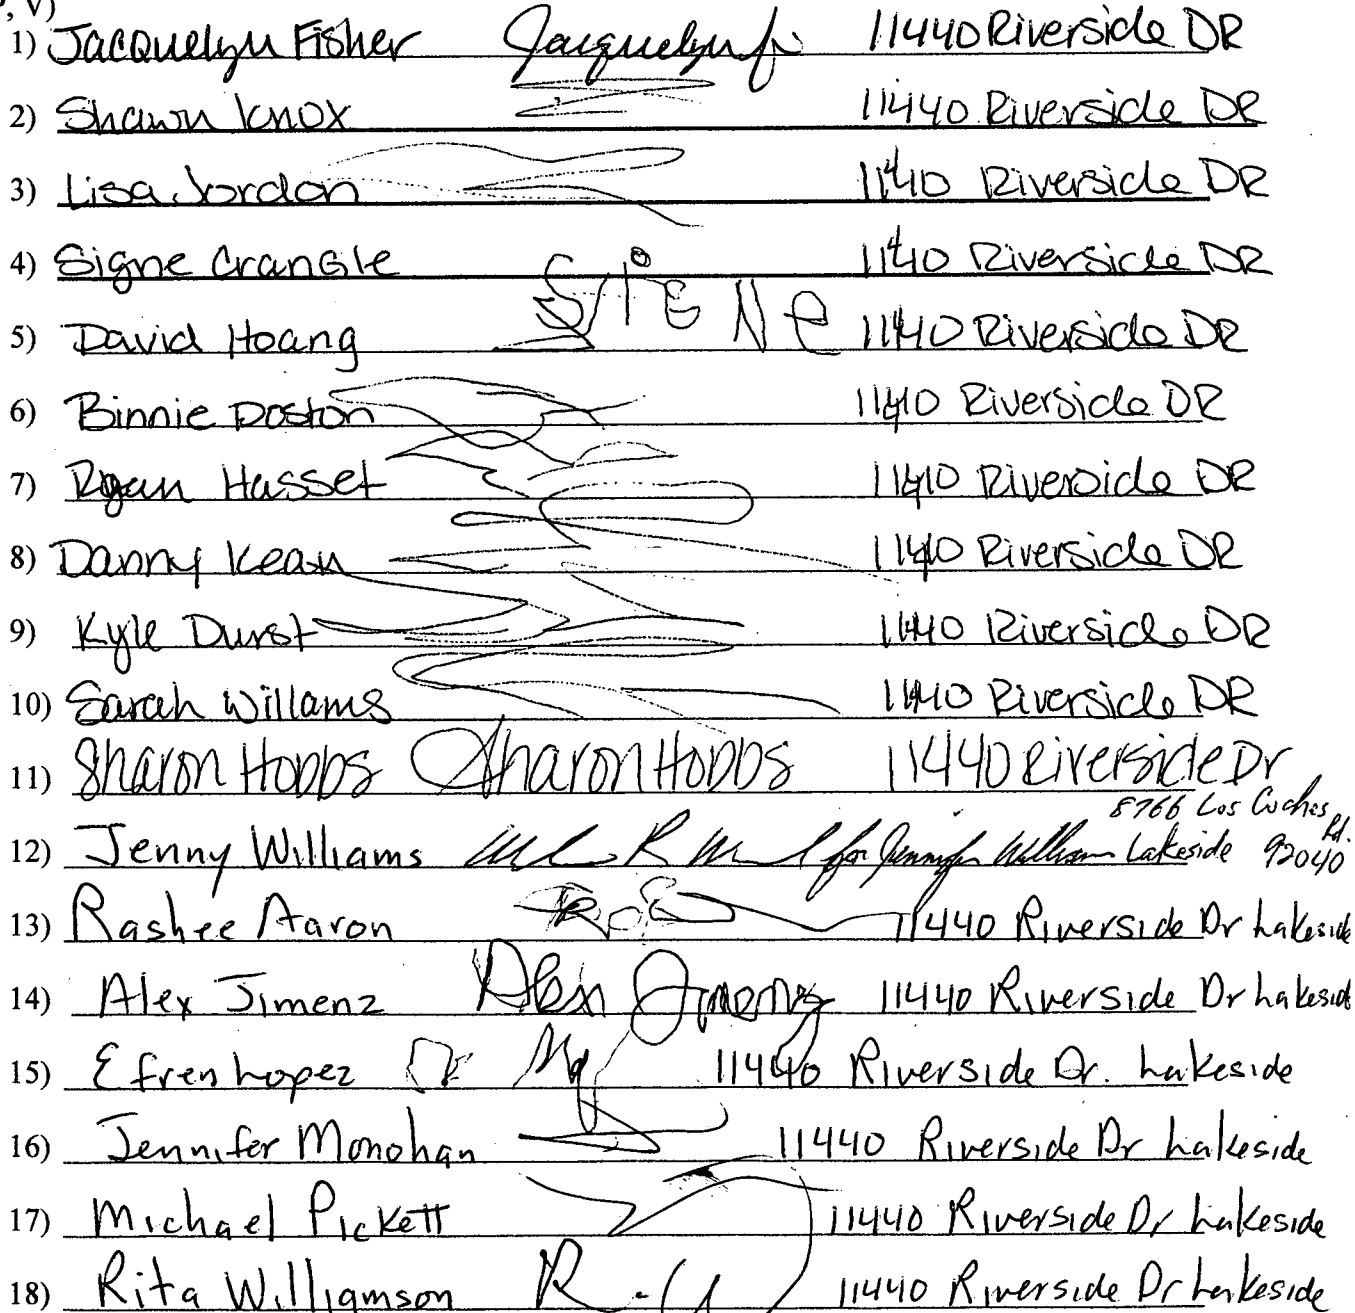 , V)
1) Jacquelyn Fisher Jacquelyn f 11440 Riverside DR
2) Shawn Knox 11440 Riverside DR
3) Lisa Jordon 11440 Riverside DR
4) Signe Crangle SiGNe 11440 Riverside DR
5) David Hoang 11440 Riverside DR
6) Binnie Poston 11440 Riverside DR
7) Ryan Hasset 11440 Riverside DR
8) Danny Kean 11440 Riverside DR
9) Kyle Durst 11440 Riverside DR
10) Sarah Willams 11440 Riverside DR
11) Sharon Hobbs Sharon Hobbs 11440 Riverside Dr
8766 Los Coches Rd.
12) Jenny Williams for Jennifer Williams Lakeside 92040
13) Rashee Aaron 11440 Riverside Dr Lakeside
14) Alex Jimenz Alex Jimenz 11440 Riverside Dr Lakesid
15) Efren Lopez 11440 Riverside Dr. Lakeside
16) Jennifer Monohan 11440 Riverside Dr Lakeside
17) Michael Pickett 11440 Riverside Dr Lakeside
18) Rita Williamson 11440 Riverside Dr Lakeside